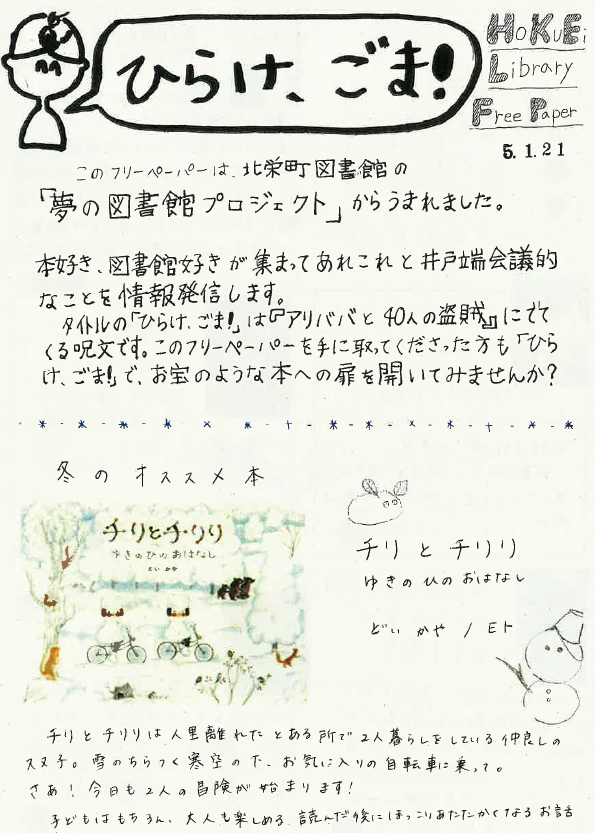 ひらけ、ごま!
HoKuEi
Library
Free Paper
5.1.21
このフリーペーパーは、北栄町図書館の
「夢の図書館プロジェクト」からうまれました。
本好き、図書館好きが集まってあれこれと井戸端会議的
なことを情報発信します。
タイトルの「ひらけ、ごま!」は『アリババと40人の盗賊』にでて
くる呪文です。このフリーペーパーを手に取ってくださった方も「ひら
け、ごま!」で、お宝のような本への扉を開いてみませんか?
冬のオススメ本
チリとチリリ
ゆきのひのおはなし
どいかや
チリとチリリ
ゆきのひのおはなし
どいかや/エト
チリとチリリは人里離れたとある所で2人暮らしをしている仲良しの
雪のちらつく寒空の下、お気に入りの自転車に乗って。
さあ!今日も2人の冒険が始まります!
子どもはもちろん、大人も楽しめる、読んだ後にほっこりあたたかくなるお話